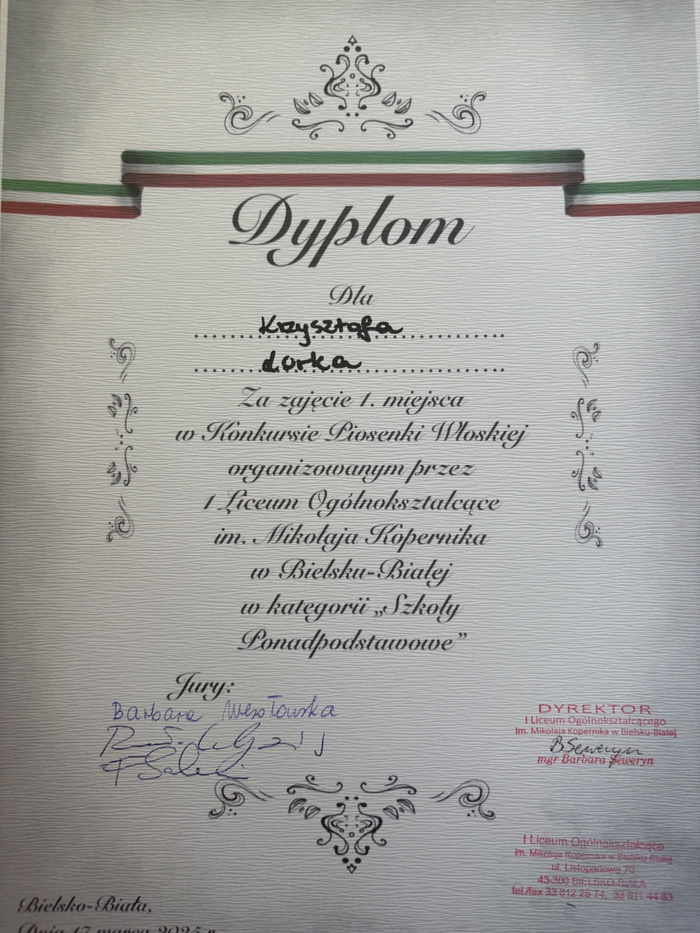 Dyplom
Dla
Krzysztofa
Lorka
Za zajęcie 1. miejsca
w Konkursie Piosenki Włoskiej
organizowanym przez
I Liceum Ogólnokształcące
im. Mikołaja Kopernika
w Bielsku-Białej
w kategorii „Szkoły
Ponadpodstawowe”
Jury:
Barbara Wesołowska
DYREKTOR
I Liceum Ogólnokształcącego
im. Mikołaja Kopernika w Bielsku-Białej
BSeweryn
mgr Barbara Seweryn
I Liceum Ogólnokształcące
im. Mikołaja Kopernika w Bielsku-Białej
ul. Listopadowa 70
43-300 BIELSKO-BIAŁA
tel./fax 33 812 25 74, 33 811 44 83
Bielsko-Biała,
Dnia 17 marca 2025 r.